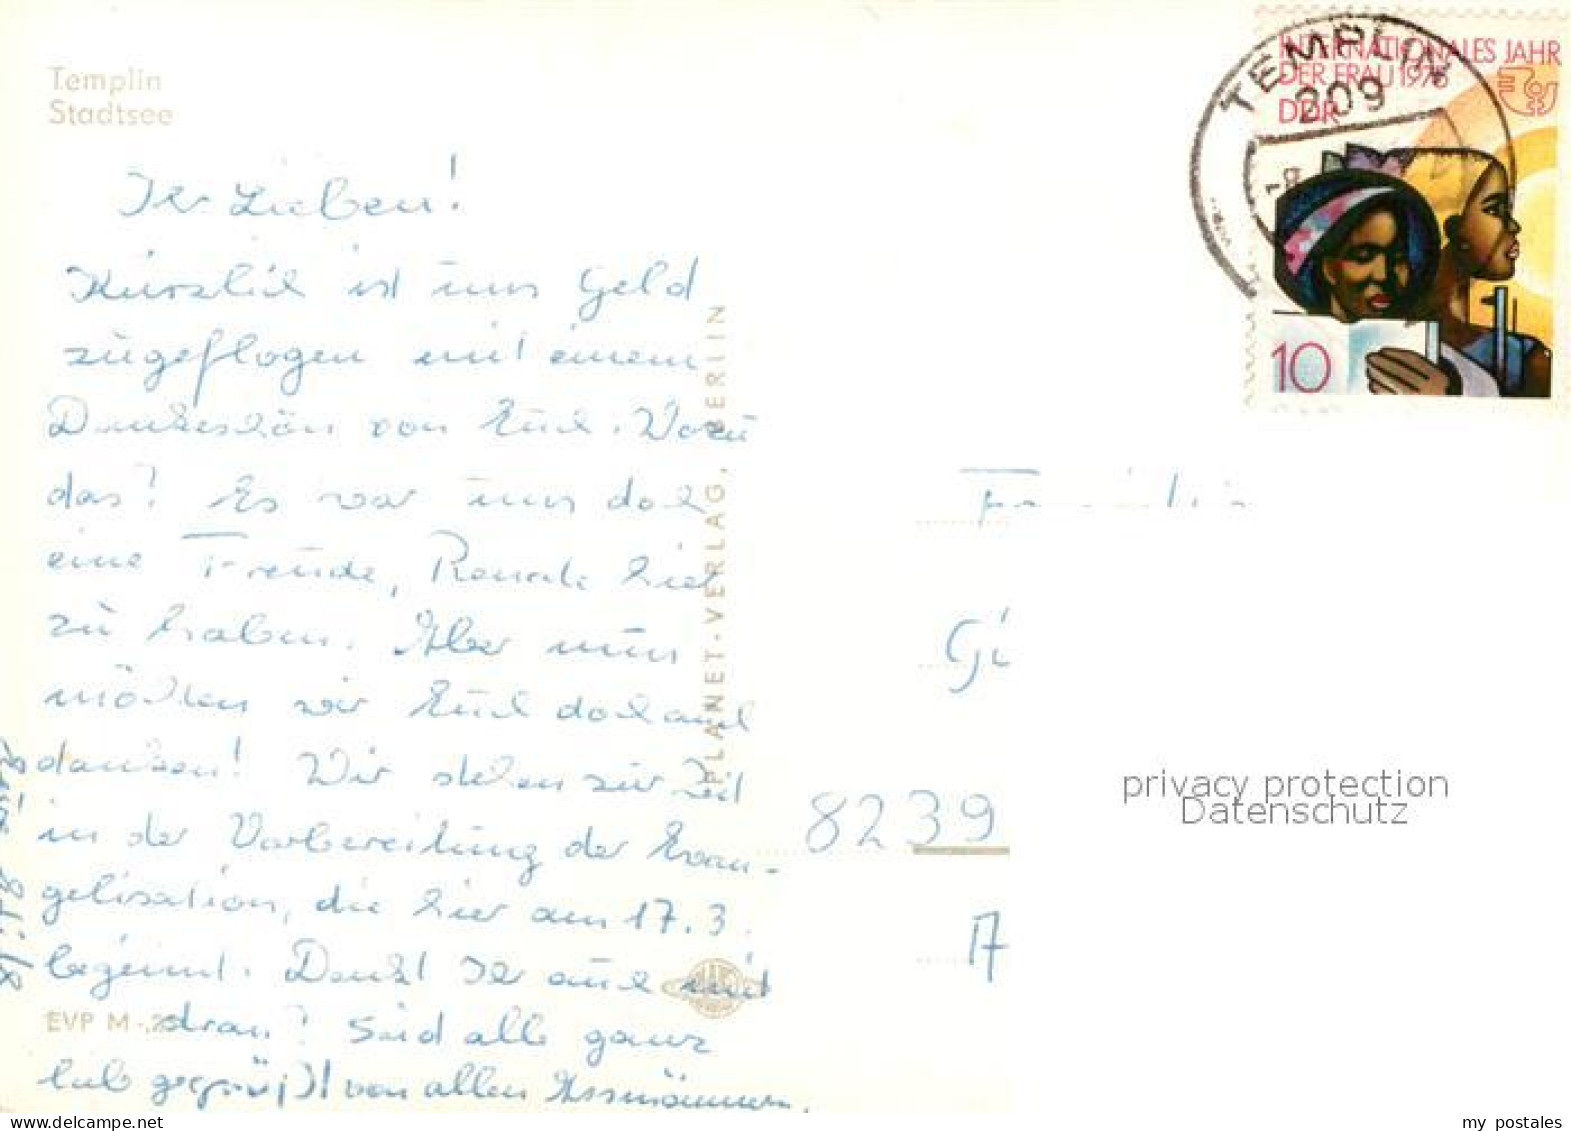 Templin
Stadtsee
Ihr Lieben!
Kürzlich ist uns Geld
zugeflogen mit einem
Dankeschön von Euch. Wozu
das? Es war uns doch
eine Freude, Renate hier
zu haben. Aber nun
möchten wir Euch doch auch
danken! Wir stehen zur Zeit
in der Vorbereitung der Evan-
gelisation, die hier am 17.3.
beginnt. Denkt Ihr auch mit
dran? Seid alle ganz
lieb gegrüßt von allen Assmännern.
EVP M -,25
PLANET-VERLAG, BERLIN
INTERNATIONALES JAHR
DER FRAU 1975
DDR
10
TEMPLIN
209
8239
privacy protection
Datenschutz
www.delcampe.net
my_postales